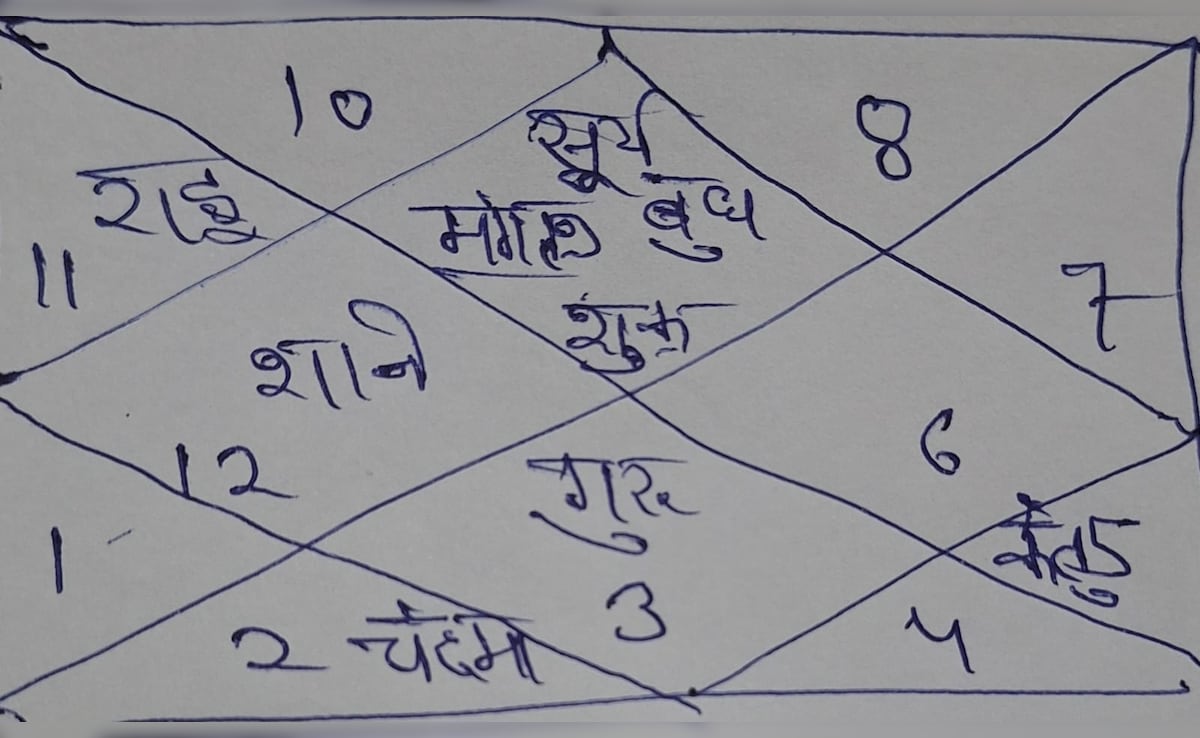 10
8
सूर्य
राहु
मंगल बुध
11
7
शुक्र
शनि
6
12
गुरु
केतु 5
1
3
4
2 चंद्रमा